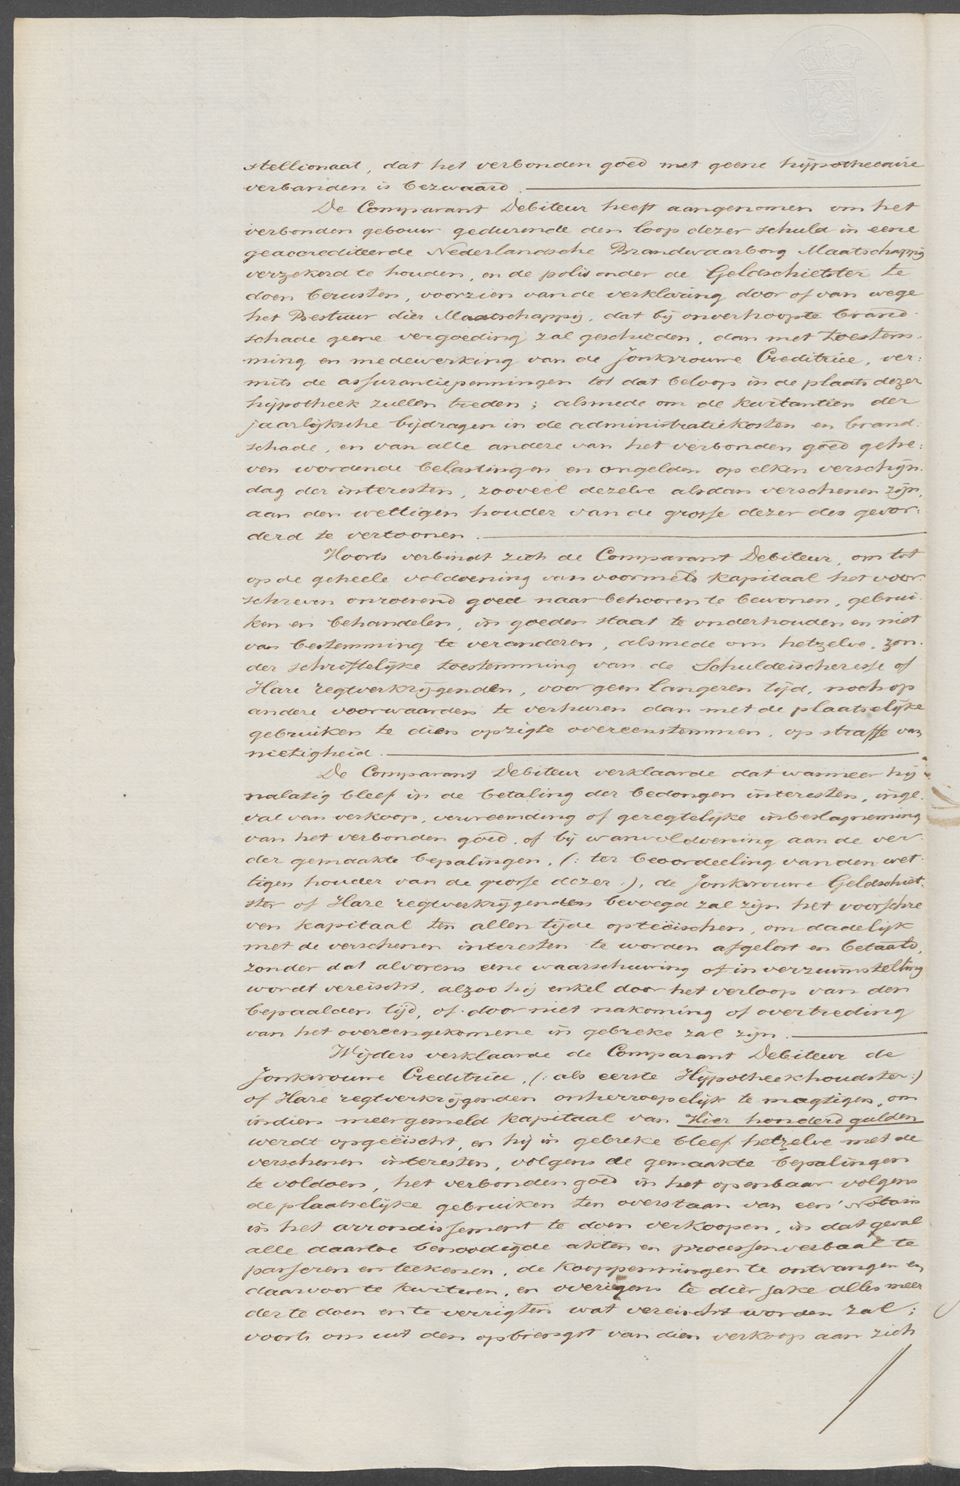 stellionaat, dat het verbonden goed met geene hijpothecaire
verbanden is bezwaard.
De Comparant Debiteur heeft aangenomen om het
verbonden gebouw gedurende den loop dezer schuld in eene
geaccrediteerde Nederlandsche Brandwaarborg Maatschappij
verzekerd te houden, en de polis onder de Geldschietster te
doen berusten, voorzien van de verklaring door of van wege
het Bestuur dier Maatschappij, dat bij onverhoopte brand-
schade geene vergoeding zal geschieden, dan met toestem-
ming en medewerking van de Jonkvrouwe Creditrice, ver-
mits de assurantiepenningen tot dat beloop in de plaats dezer
hijpotheek zullen treden; alsmede om de kwitantiën der
jaarlijksche bijdragen in de administratiekosten en brand-
schade, en van alle andere van het verbonden goed gehe-
ven wordende belastingen en ongelden op elken verschijn-
dag der interesten, zooveel dezelve alsdan verschenen zijn,
aan den wettigen houder van de grosse dezer des gevor-
derd te vertoonen.
Voorts verbindt zich de Comparant Debiteur, om tot
op de geheele voldoening van voormeld kapitaal het voor-
schreven onroerend goed naar behooren te bewonen, gebrui-
ken en behandelen, in goeden staat te onderhouden en niet
van bestemming te veranderen, alsmede om hetzelve, zon-
der schriftelijke toestemming van de Schuldeischeresse of
Hare regtverkrijgenden, voor geen langeren tijd, noch op
andere voorwaarden te verhuren dan met de plaatselijke
gebruiken te dien opzigte overeenstemmen, op straffe van
nietigheid.
De Comparant Debiteur verklaarde dat wanneer hij
nalatig bleef in de betaling der bedongen interesten, inge-
val van verkoop, vervreemding of geregtelijke inbeslagneming
van het verbonden goed, of bij wanvoldoening aan de ver-
der gemaakte bepalingen, (: ter beoordeeling van den wet-
tigen houder van de grosse dezer :), de Jonkvrouwe Geldschiet-
ster of Hare regtverkrijgenden bevoegd zal zijn het voorschre
ven kapitaal ten allen tijde opteëischen, om dadelijk
met de verschenen interesten te worden afgelost en betaald,
zonder dat alvorens eene waarschuwing of in verzuimstelling
wordt vereischt, alzoo hij enkel door het verloop van den
bepaalden tijd, of door niet nakoming of overtreding
van het overeengekomene in gebreke zal zijn.
Wijders verklaarde de Comparant Debiteur de
Jonkvrouwe Creditrice, (: als eerste Hijpotheekhoudster :)
of Hare regtverkrijgenden onherroepelijk te magtigen, om
indien meergemeld kapitaal van Vier honderd gulden
werdt opgeëischt, en hij in gebreke bleef hetzelve met de
verschenen interesten, volgens de gemaakte bepalingen
te voldoen, het verbonden goed in het openbaar volgens
de plaatselijke gebruiken ten overstaan van een Notaris
in het arrondissement te doen verkoopen, in dat geval
alle daartoe benoodigde akten en processenverbaal te
passeren en teekenen, de kooppenningen te ontvangen en
daarvoor te kwiteren, en overigens te dier zake alles meer
der te doen en te verrigten wat vereischt worden zal;
voorts om uit den opbrengst van dien verkoop aan zich